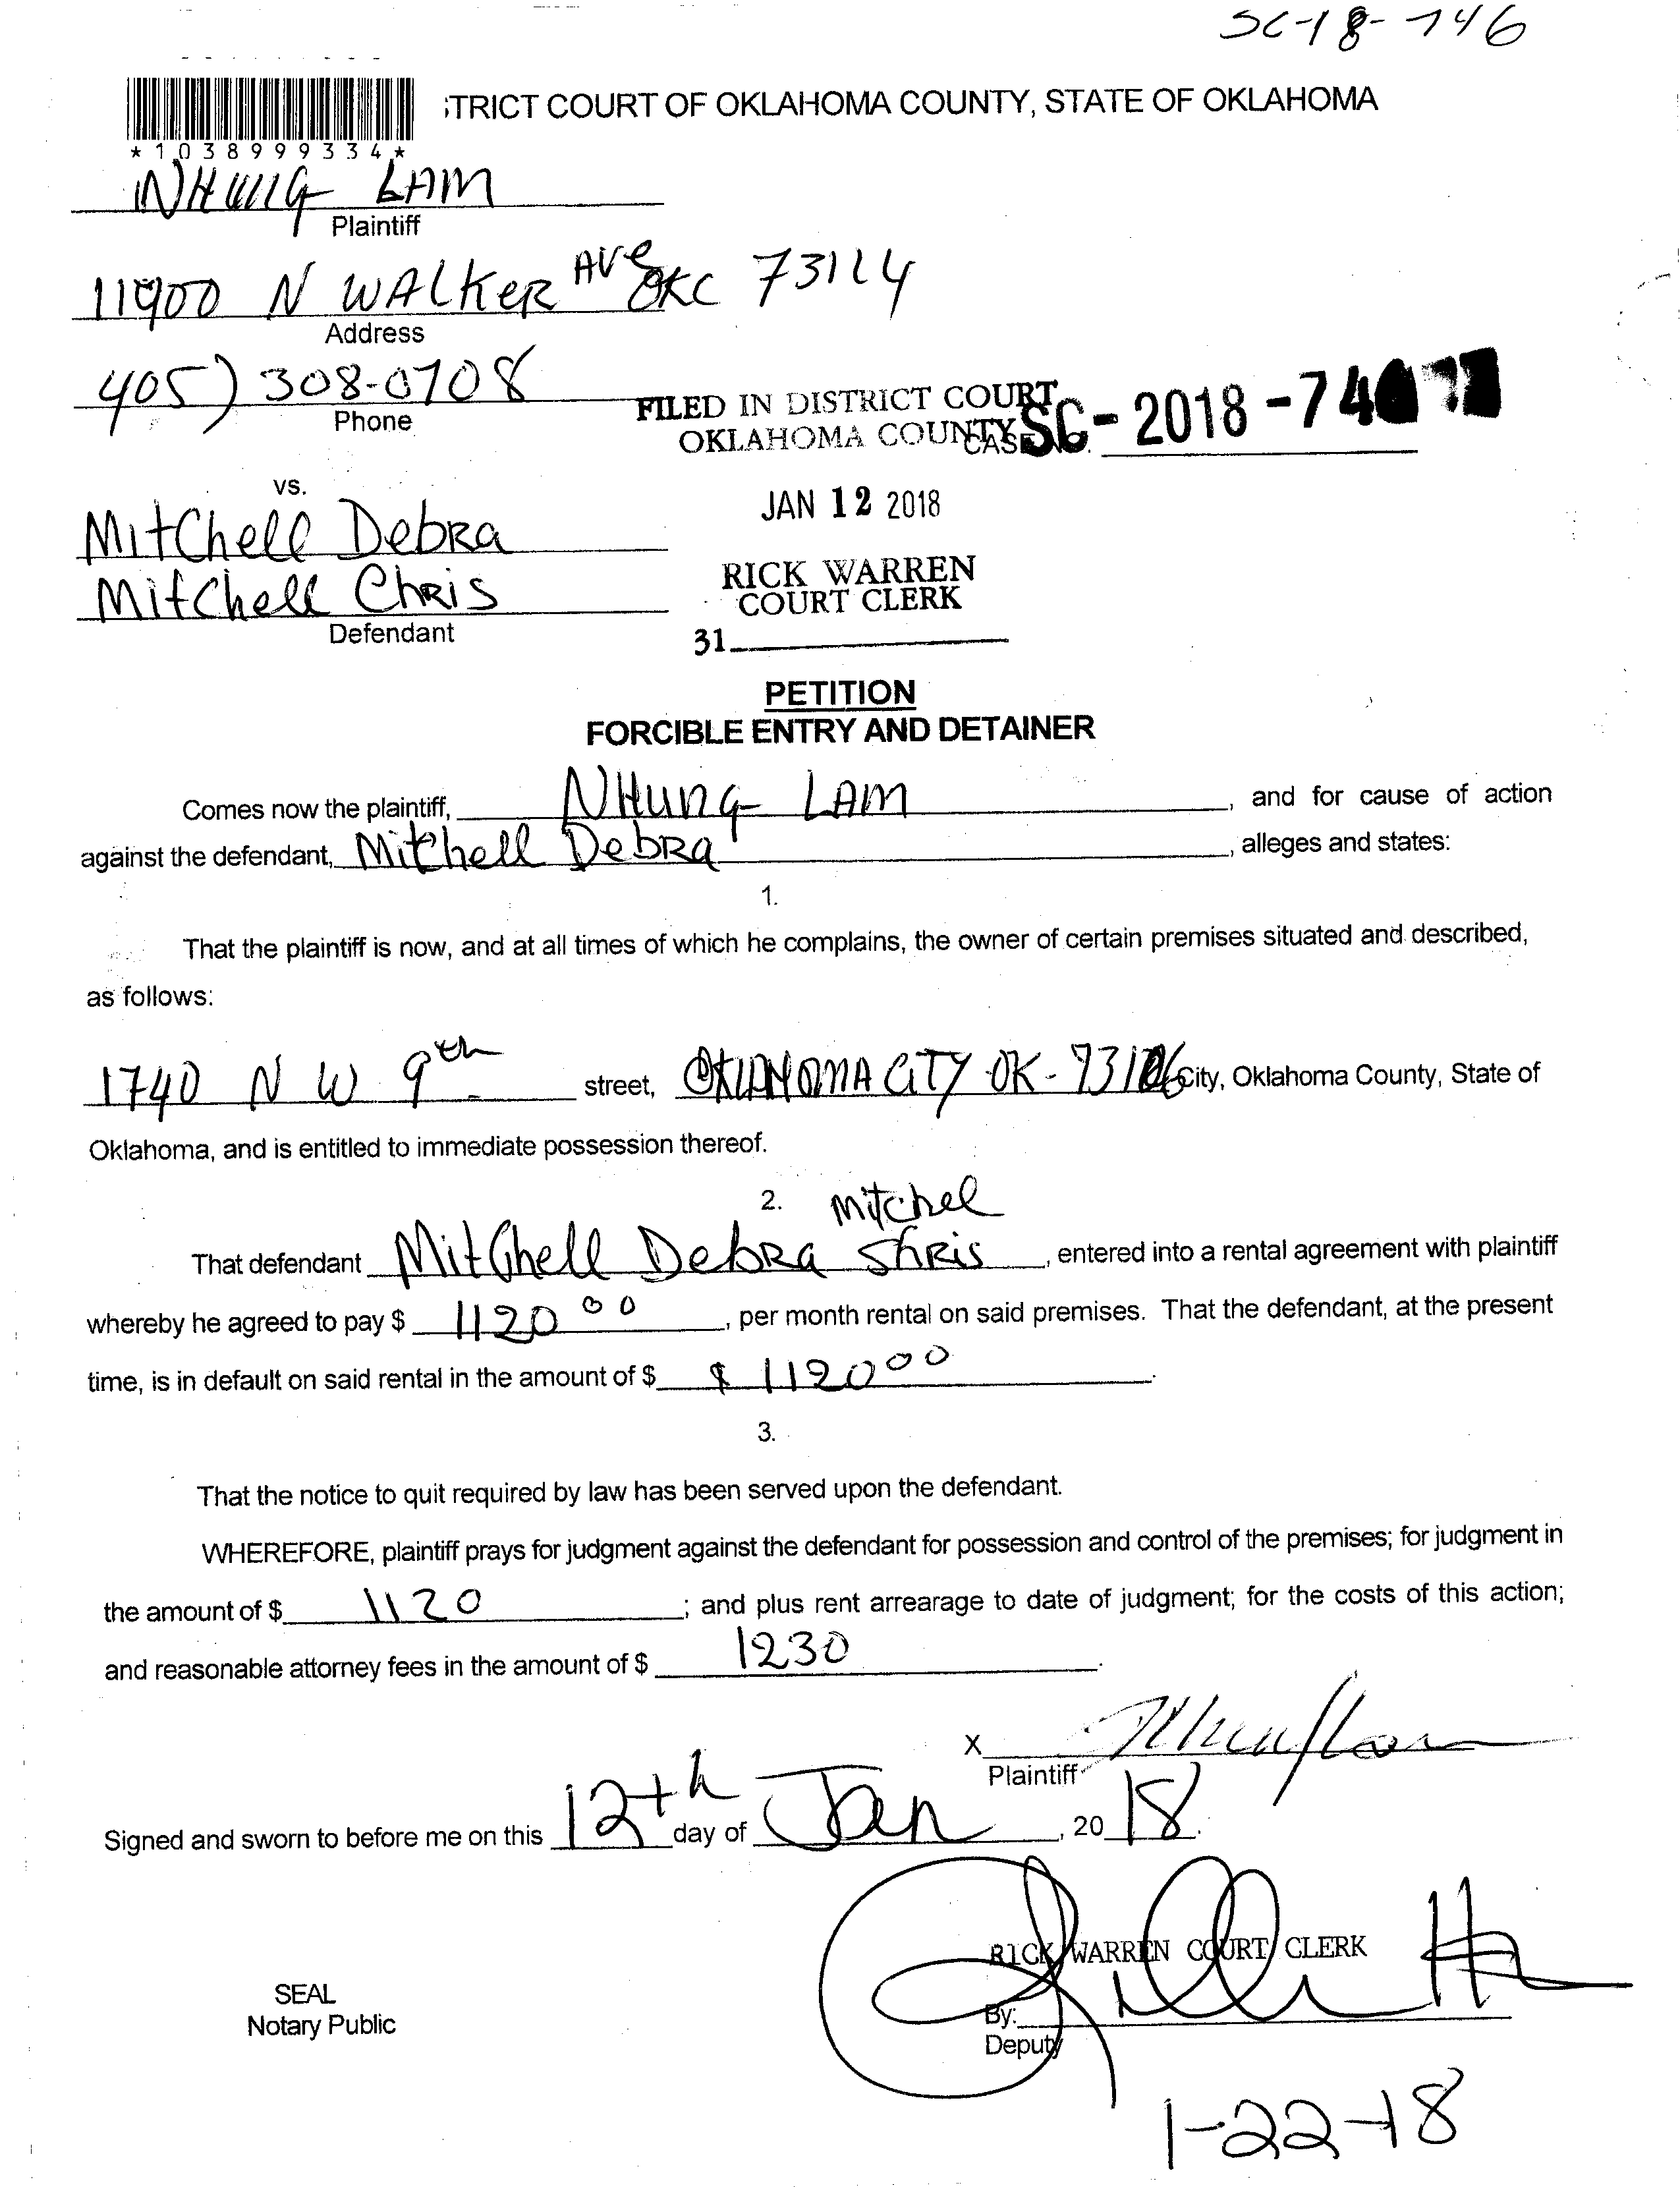 SC-18-746
TRICT COURT OF OKLAHOMA COUNTY, STATE OF OKLAHOMA
*1038999334*
NHUNG LAM
Plaintiff
11900 N WALKER AVE OKC 73114
Address
405) 308-0708
Phone
FILED IN DISTRICT COURT
OKLAHOMA COUNTY
CASE NO. SC-2018-746
vs.
Mitchell Debra
Mitchell Chris
Defendant
JAN 12 2018
RICK WARREN
COURT CLERK
31
PETITION
FORCIBLE ENTRY AND DETAINER
Comes now the plaintiff, NHung LAM, and for cause of action
against the defendant, Mithell Debra, alleges and states:
1.
That the plaintiff is now, and at all times of which he complains, the owner of certain premises situated and described,
as follows:
1740 N W 9th street, OKLAHOMA CITY OK - 73106 City, Oklahoma County, State of
Oklahoma, and is entitled to immediate possession thereof.
2.
Mitchel
That defendant Mitchell Debra ShRis, entered into a rental agreement with plaintiff
whereby he agreed to pay $ 1120 00, per month rental on said premises. That the defendant, at the present
time, is in default on said rental in the amount of $ $ 1120 00.
3.
That the notice to quit required by law has been served upon the defendant.
WHEREFORE, plaintiff prays for judgment against the defendant for possession and control of the premises; for judgment in
the amount of $ 1120; and plus rent arrearage to date of judgment; for the costs of this action;
and reasonable attorney fees in the amount of $ 1230.
X
Plaintiff
Signed and sworn to before me on this 12th day of Jan, 2018.
RICK WARREN COURT CLERK
SEAL
Notary Public
By:
Deputy
1-22-18